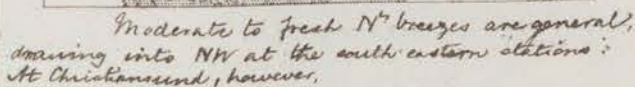 Moderate to fresh Nly breezes are general,
drawing into NW at the south eastern stations:
At Christiansund, however,